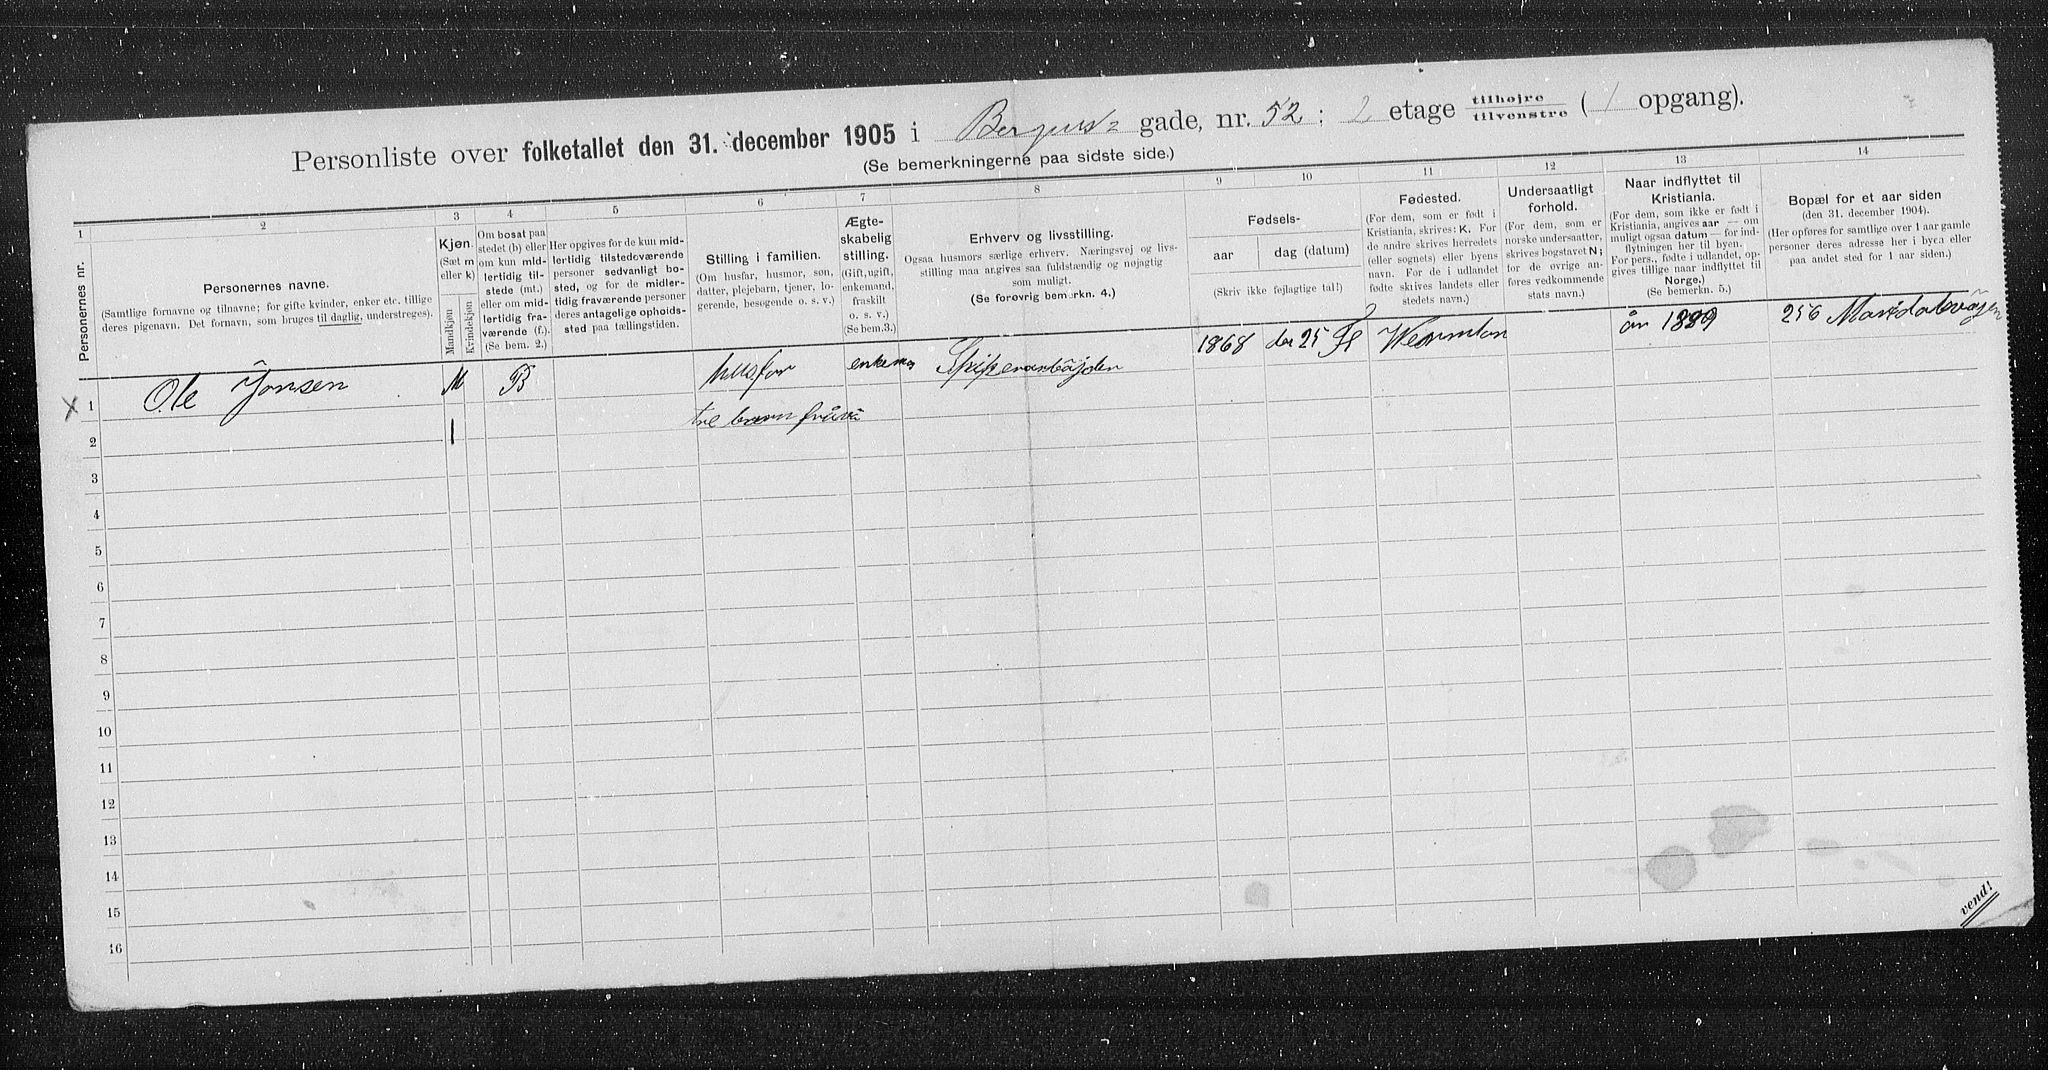 Personliste over folketallet den 31. december 1905 i Bergens gade, nr. 52; 2 etage tilhøjre tilvenstre ( 1 opgang).
(Se bemerkningerne paa sidste side.)
1 2 3 4 5 6 7 8 9 10 11 12 13 14
Personernes nr.
Personernes navne.
(Samtlige fornavne og tilnavne; for gifte kvinder, enker etc. tillige
deres pigenavn. Det fornavn, som bruges til daglig, understreges).
Kjøn.
(Sæt m
eller k)
Mandkjøn
Kvindekjøn
Om bosat paa
stedet (b) eller
om kun mid-
lertidig til-
stede (mt.)
eller om mid-
lertidig fra-
værende (f.)
(Se bem. 2.)
Her opgives for de kun mid-
lertidig tilstedeværende
personer sedvanlig bo-
sted, og for de midler-
tidig fraværende personer
deres antagelige opholds-
sted paa tællingstiden.
Stilling i familien.
(Om husfar, husmor, søn,
datter, plejebarn, tjener, lo-
gerende, besøgende o. s. v.)
Ægte-
skabelig
stilling.
(Gift, ugift,
enkemand,
fraskilt
o. s. v.)
(Se bem.3.)
Erhverv og livsstilling.
Ogsaa husmors særlige erhverv. Næringsvej og livs-
stilling maa angives saa fuldstændig og nøjagtig
som muligt.
(Se forøvrig bemerkn. 4.)
Fødsels-
aar
dag (datum)
(Skriv ikke fejlagtige tal!)
Fødested.
(For dem, som er født i
Kristiania, skrives: K. For
de andre skrives herredets
(eller sognets) eller byens
navn. For de i udlandet
fødte skives landets eller
stedets navn.)
Undersaatligt
forhold.
(For dem, som er
norske undersaatter,
skrives bogstavet N;
for de øvrige an-
føres vedkommende
stats navn.)
Naar indflyttet til
Kristiania.
(For dem, som ikke er født i
Kristiania, angives aar — om
muligt ogsaa datum — for ind-
flytningen her til byen.
For pers., fødte i udlandet, op-
gives tillige naar indflyttet til
Norge.)
(Se bemerkn. 5.)
Bopæl for et aar siden
(den 31. december 1904).
(Her opføres for samtlige over 1 aar gamle
personer deres adresse her i byen eller
paa andet sted for 1 aar siden.)
x 1 Ole Jonsen M B husfar enkema 1868 den 25 Wermlan år 1889 256 Maridalsvägen
2 1 tre barn
3
4
5
6
7
8
9
10
11
12
13
14
15
16
vend!